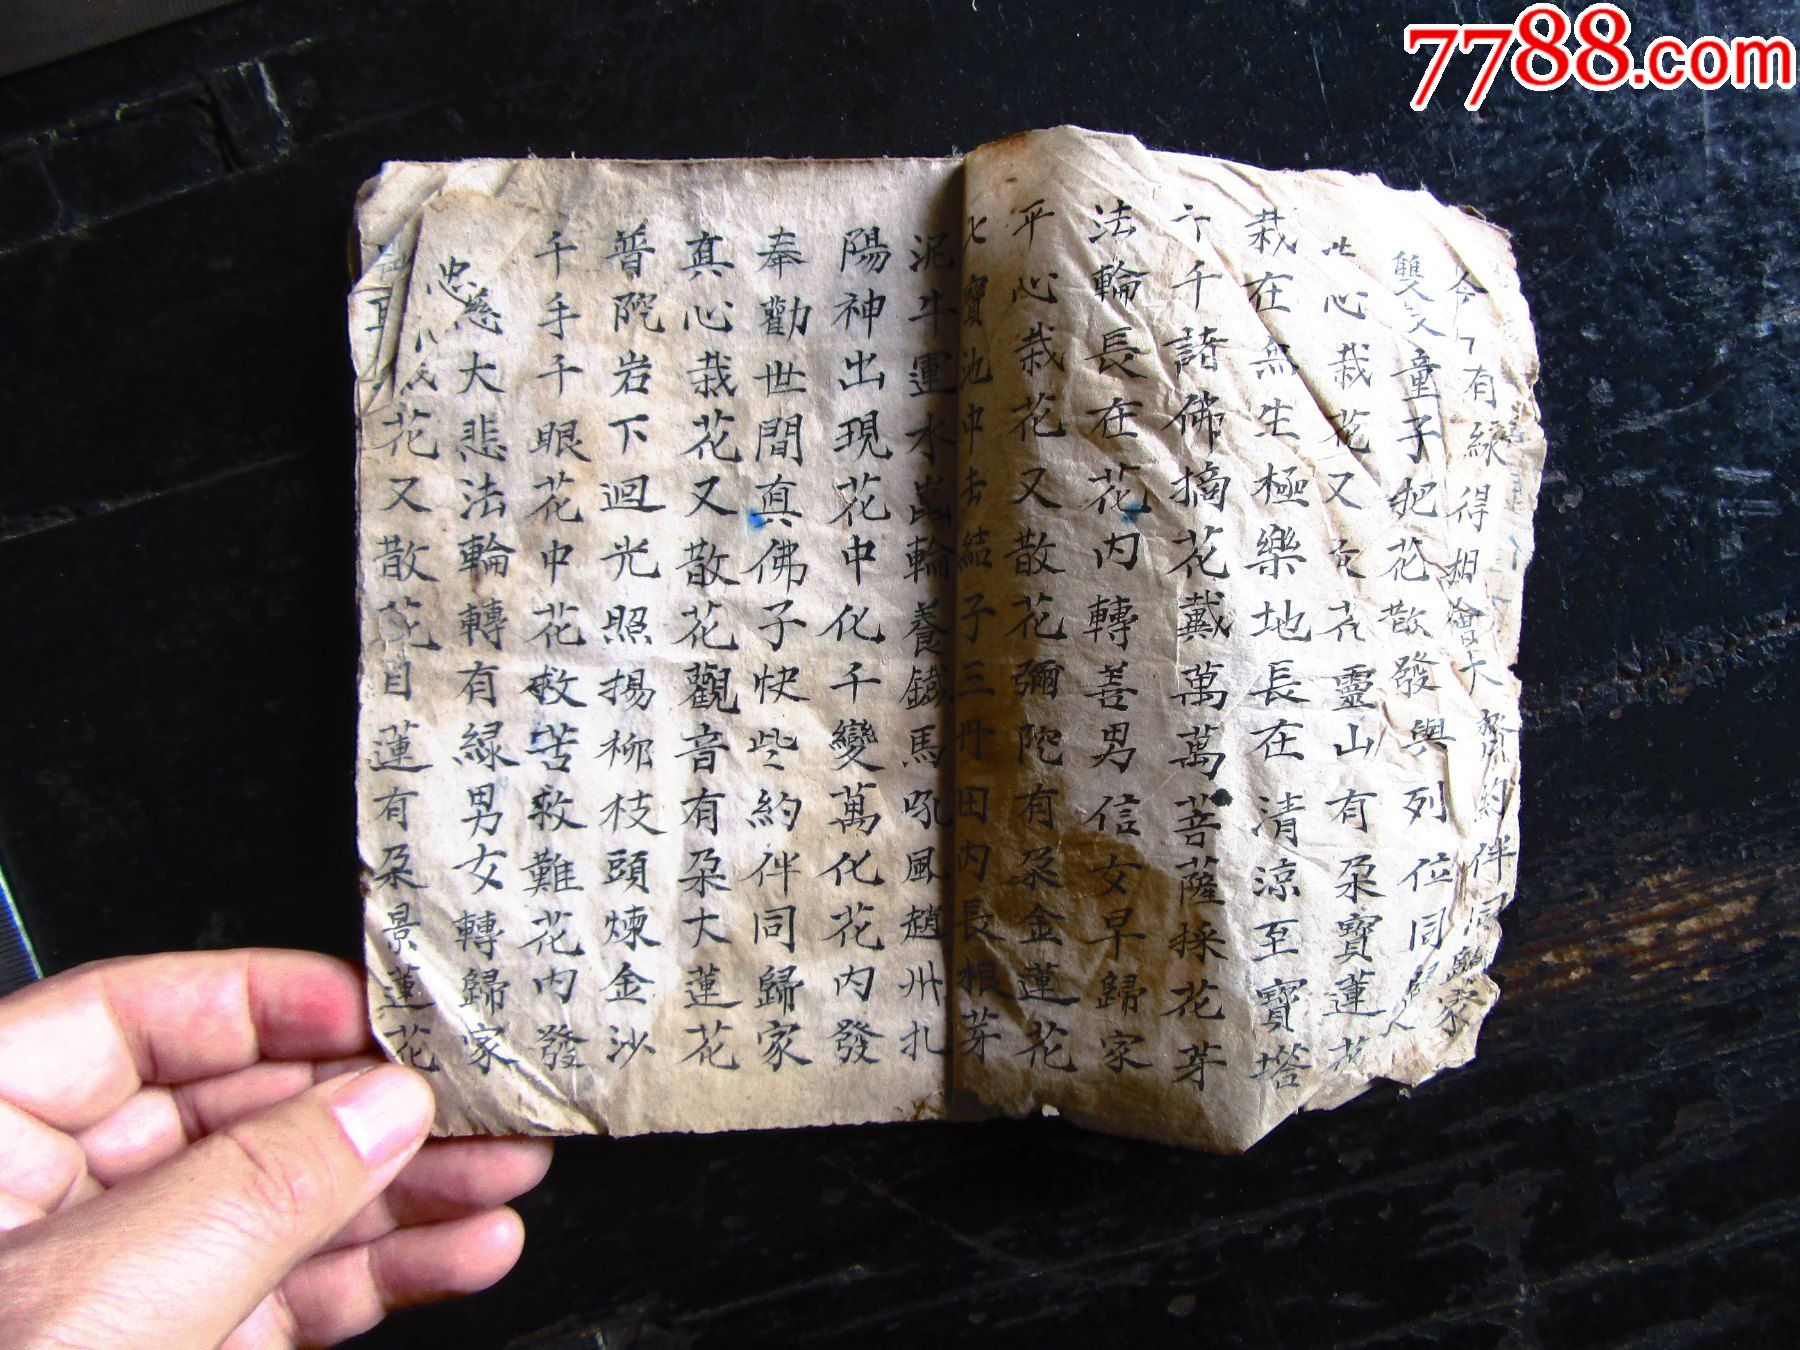 7788.com
今 有緣得相會大齊約伴同歸家
雙雙童子把花散發與列位同
心栽花又 花靈山有朶寶蓮花
栽在無生極樂地長在清涼至寶塔
千千諸佛摘花戴萬萬菩薩採花芽
法輪長在花内轉善男信女早歸家
平心栽花又散花彌陀有朶金蓮花
七寶池中去結子三丹田内長根芽
泥牛運水崑輪養鐵馬吼風趙州扎
陽神出現花中化千變萬化花内發
奉勸世間真佛子快些約伴同歸家
真心栽花又散花觀音有朶大蓮花
普陀岩下迴光照揚柳枝頭煉金沙
千手千眼花中花救苦救難花内發
慈大悲法輪轉有緣男女轉歸家
花又散花目蓮有朶景蓮花
忠